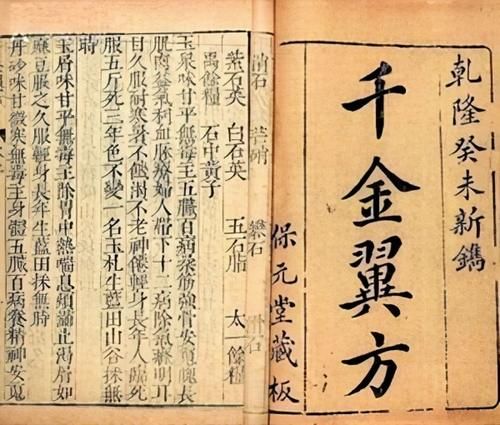 乾隆癸未新鐫
千金翼方
保元堂藏板
消石 芒硝 礬石 滑石
紫石英 白石英 五石脂 太一餘糧
禹餘糧 石中黃子
玉泉味甘平無毒主五臟百病柔筋強骨安魂魄長
肌肉益氣利血脉療婦人帶下十二病除氣癃明耳
目久服耐寒暑不飢渴不老神僊輕身長年人臨死
服五斤死三年色不變一名玉札生藍田山谷採無
時
玉屑味甘平無毒主除胃中熱喘息煩滿止渴屑如
麻豆服之久服輕身長年生藍田採無時
丹砂味甘微寒無毒主身體五臟百病養精神安魂